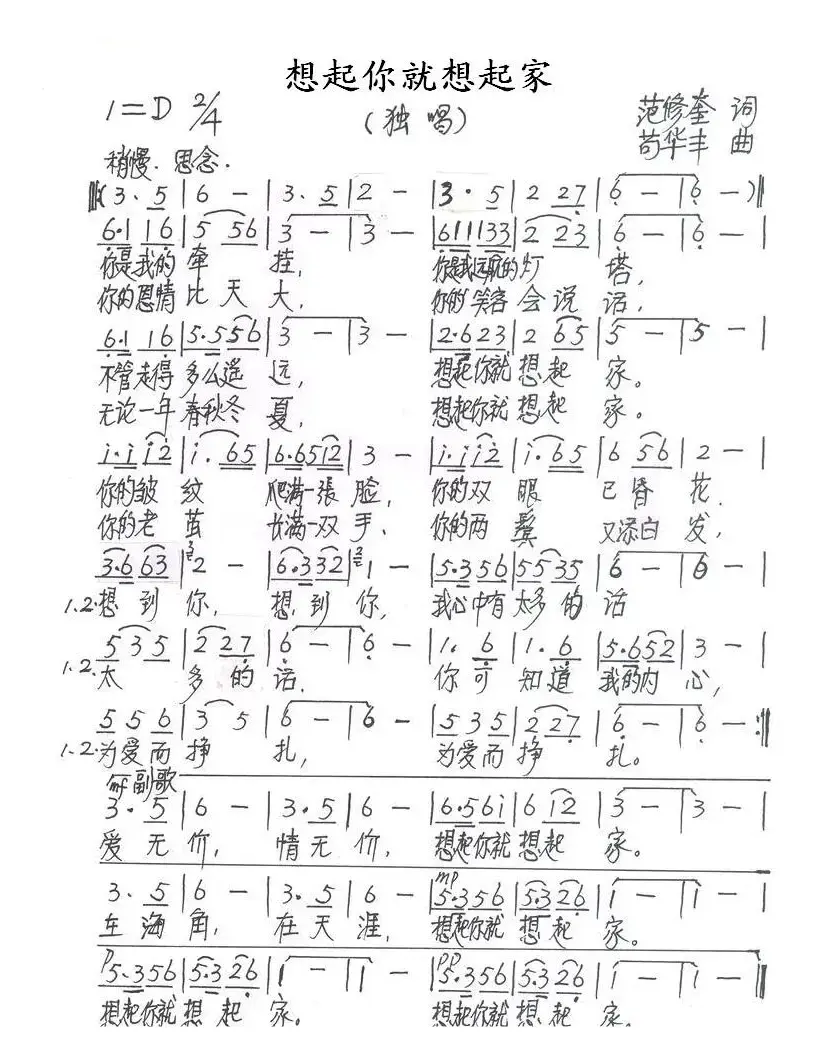 想起你就想起家
1=D 2/4
(独唱)
范修奎 词
苟华丰 曲
稍慢.思念.
‖(3. 5 | 6 - | 3. 5 | 2 - | 3. 5 | 2 27 | 6 - | 6 -)‖
6.1 16 | 5 56 | 3 - | 3 - | 611133 | 2 23 | 6 - | 6 - |
你是我的牵挂, 你是我远航的灯塔,
你的恩情比天大, 你的笑容会说话,
6.1 16 | 5.556 | 3 - | 3 - | 2.623 | 2 65 | 5 - | 5 - |
不管走得多么遥远, 想起你就想起家。
无论一年春秋冬夏, 想起你就想起家。
i.i i2 | i. 65 | 6.6512 | 3 - | i.i i2 | i. 65 | 6 56 | 2 - |
你的皱纹爬满一張脸, 你的双眼已昏花.
你的老茧长满一双手、 你的两鬓又添白发,
3.6 63 | 2 - | 6.332 | 1 - | 5.356 | 5535 | 6 - | 6 - |
1.2.想到你, 想到你, 我心中有太多的话
5 3 5 | 2 27 | 6 - | 6 - | 1. 6 | 1. 6 | 5.652 | 3 - |
1.2.太多的话. 你可知道我的内心,
5 5 6 | 3 5 | 6 - | 6 - | 5 3 5 | 2 27 | 6 - | 6 - :‖
1.2.为爱而挣扎, 为爱而挣扎。
mf 副歌
3. 5 | 6 - | 3. 5 | 6 - | 6.56i | 6 i2 | 3 - | 3 - |
爱无价, 情无价, 想起你就想起家。
mp
3. 5 | 6 - | 3. 5 | 6 - | 5.356 | 5.3 26 | 1 - | 1 - |
在海角, 在天涯, 想起你就想起家。
p 5.356 | 5.3 26 | 1 - | 1 - | pp 5.356 | 5.3 26 | 1 - | 1 - ‖
想起你就想起家。 想起你就想起家。